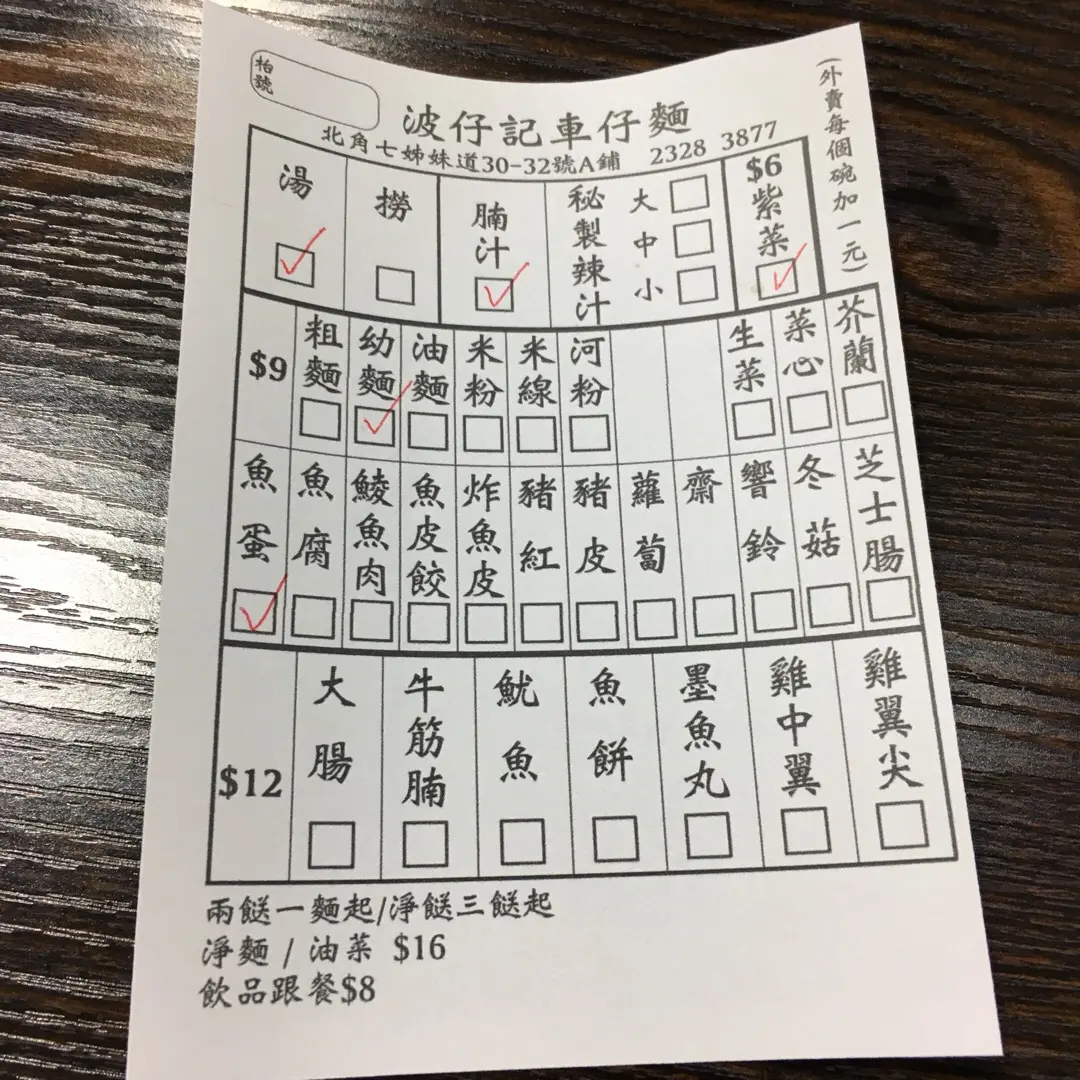 枱號
波仔記車仔麵
北角七姊妹道30-32號A鋪 2328 3877
(外賣每個碗加一元)
湯
撈
腩汁
秘製辣汁
大
中
小
$6
紫菜
$9
粗麵
幼麵
油麵
米粉
米線
河粉
生菜
菜心
芥蘭
魚蛋
魚腐
鯪魚肉
魚皮餃
炸魚皮
豬紅
豬皮
蘿蔔
齋
響鈴
冬菇
芝士腸
$12
大腸
牛筋腩
魷魚
魚餅
墨魚丸
雞中翼
雞翼尖
兩餸一麵起/淨餸三餸起
淨麵 / 油菜 $16
飲品跟餐$8